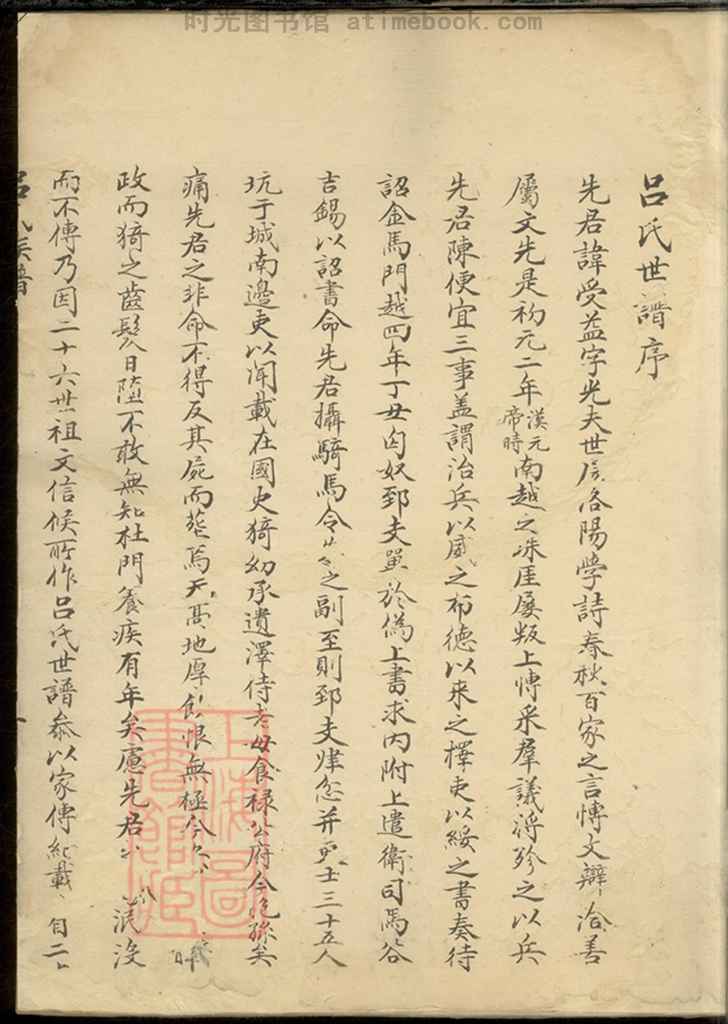 时光图书馆 atimebook.com
呂氏世譜序
先君諱受益字光夫世居洛陽學詩春秋百家之言博文辯洽善
屬文先是初元二年漢元帝時南越之珠厓屢叛上博采羣議將殄之以兵
先君陳便宜三事盖謂治兵以威之布德以来之擇吏以綏之書奏待
詔金馬門越四年丁丑匈奴郅支單於偽上書求內附上遣衛司馬谷
吉錫以詔書命先君攝騎馬令 之副至則郅支肆忿并吏士三十五人
坑于城南邊吏以聞載在國史猗幼承遺澤侍老母食禄公府今 孫矣
痛先君之非命不得反其屍而塟焉天髙地厚飲恨無極今
政而猗之齒髮日墮不敢無知杜門養疾有年矣慮先君 泯沒
而不傳乃因二十六世祖文信侯所作呂氏世譜叅以家傳紀載 自二
呂氏族譜
上海圖書館藏